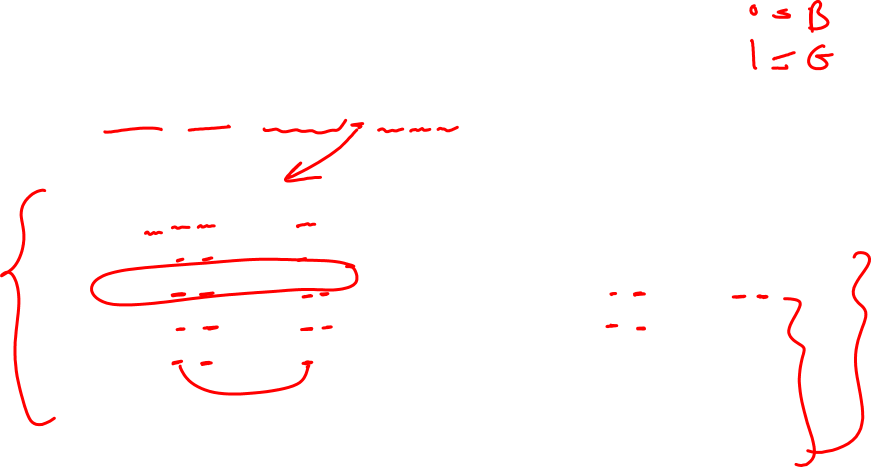 0 = B
1 = G